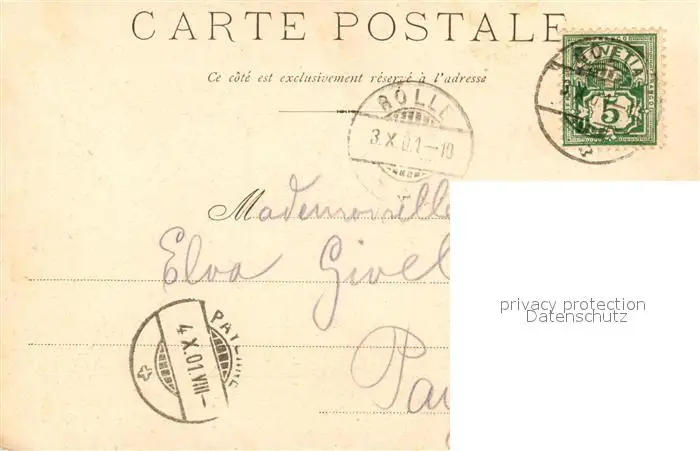 CARTE POSTALE
Ce côté est exclusivement réservé à l'adresse
HELVETIA
5
ROLLE
3.X.01-10
Mademoiselle
Elva Givel
privacy protection
Datenschutz
PAYERNE
4.X.01.VIII-
Pay